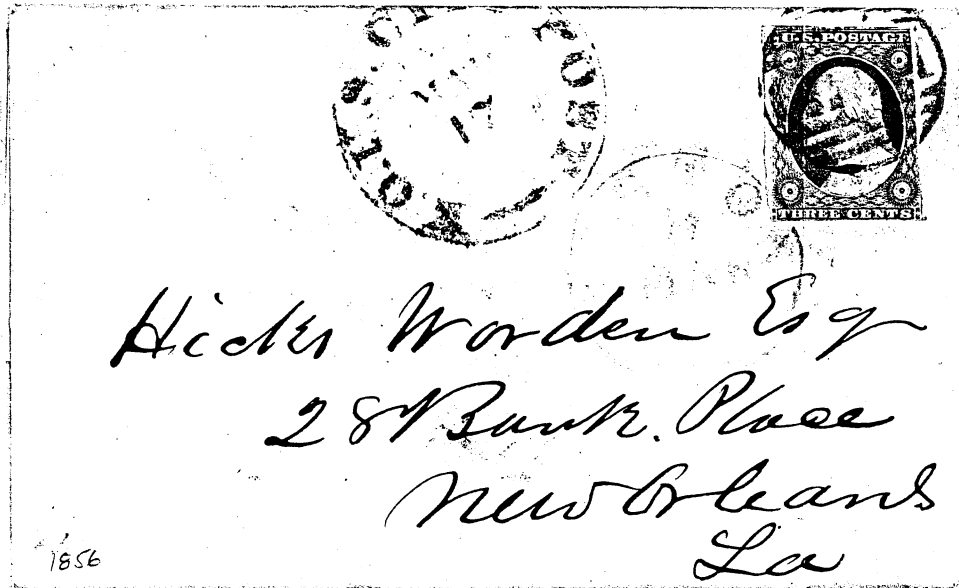 U.S. POSTAGE
THREE CENTS
Hicks Worden Esq
28 Bank. Place
New Orleans
La
1856